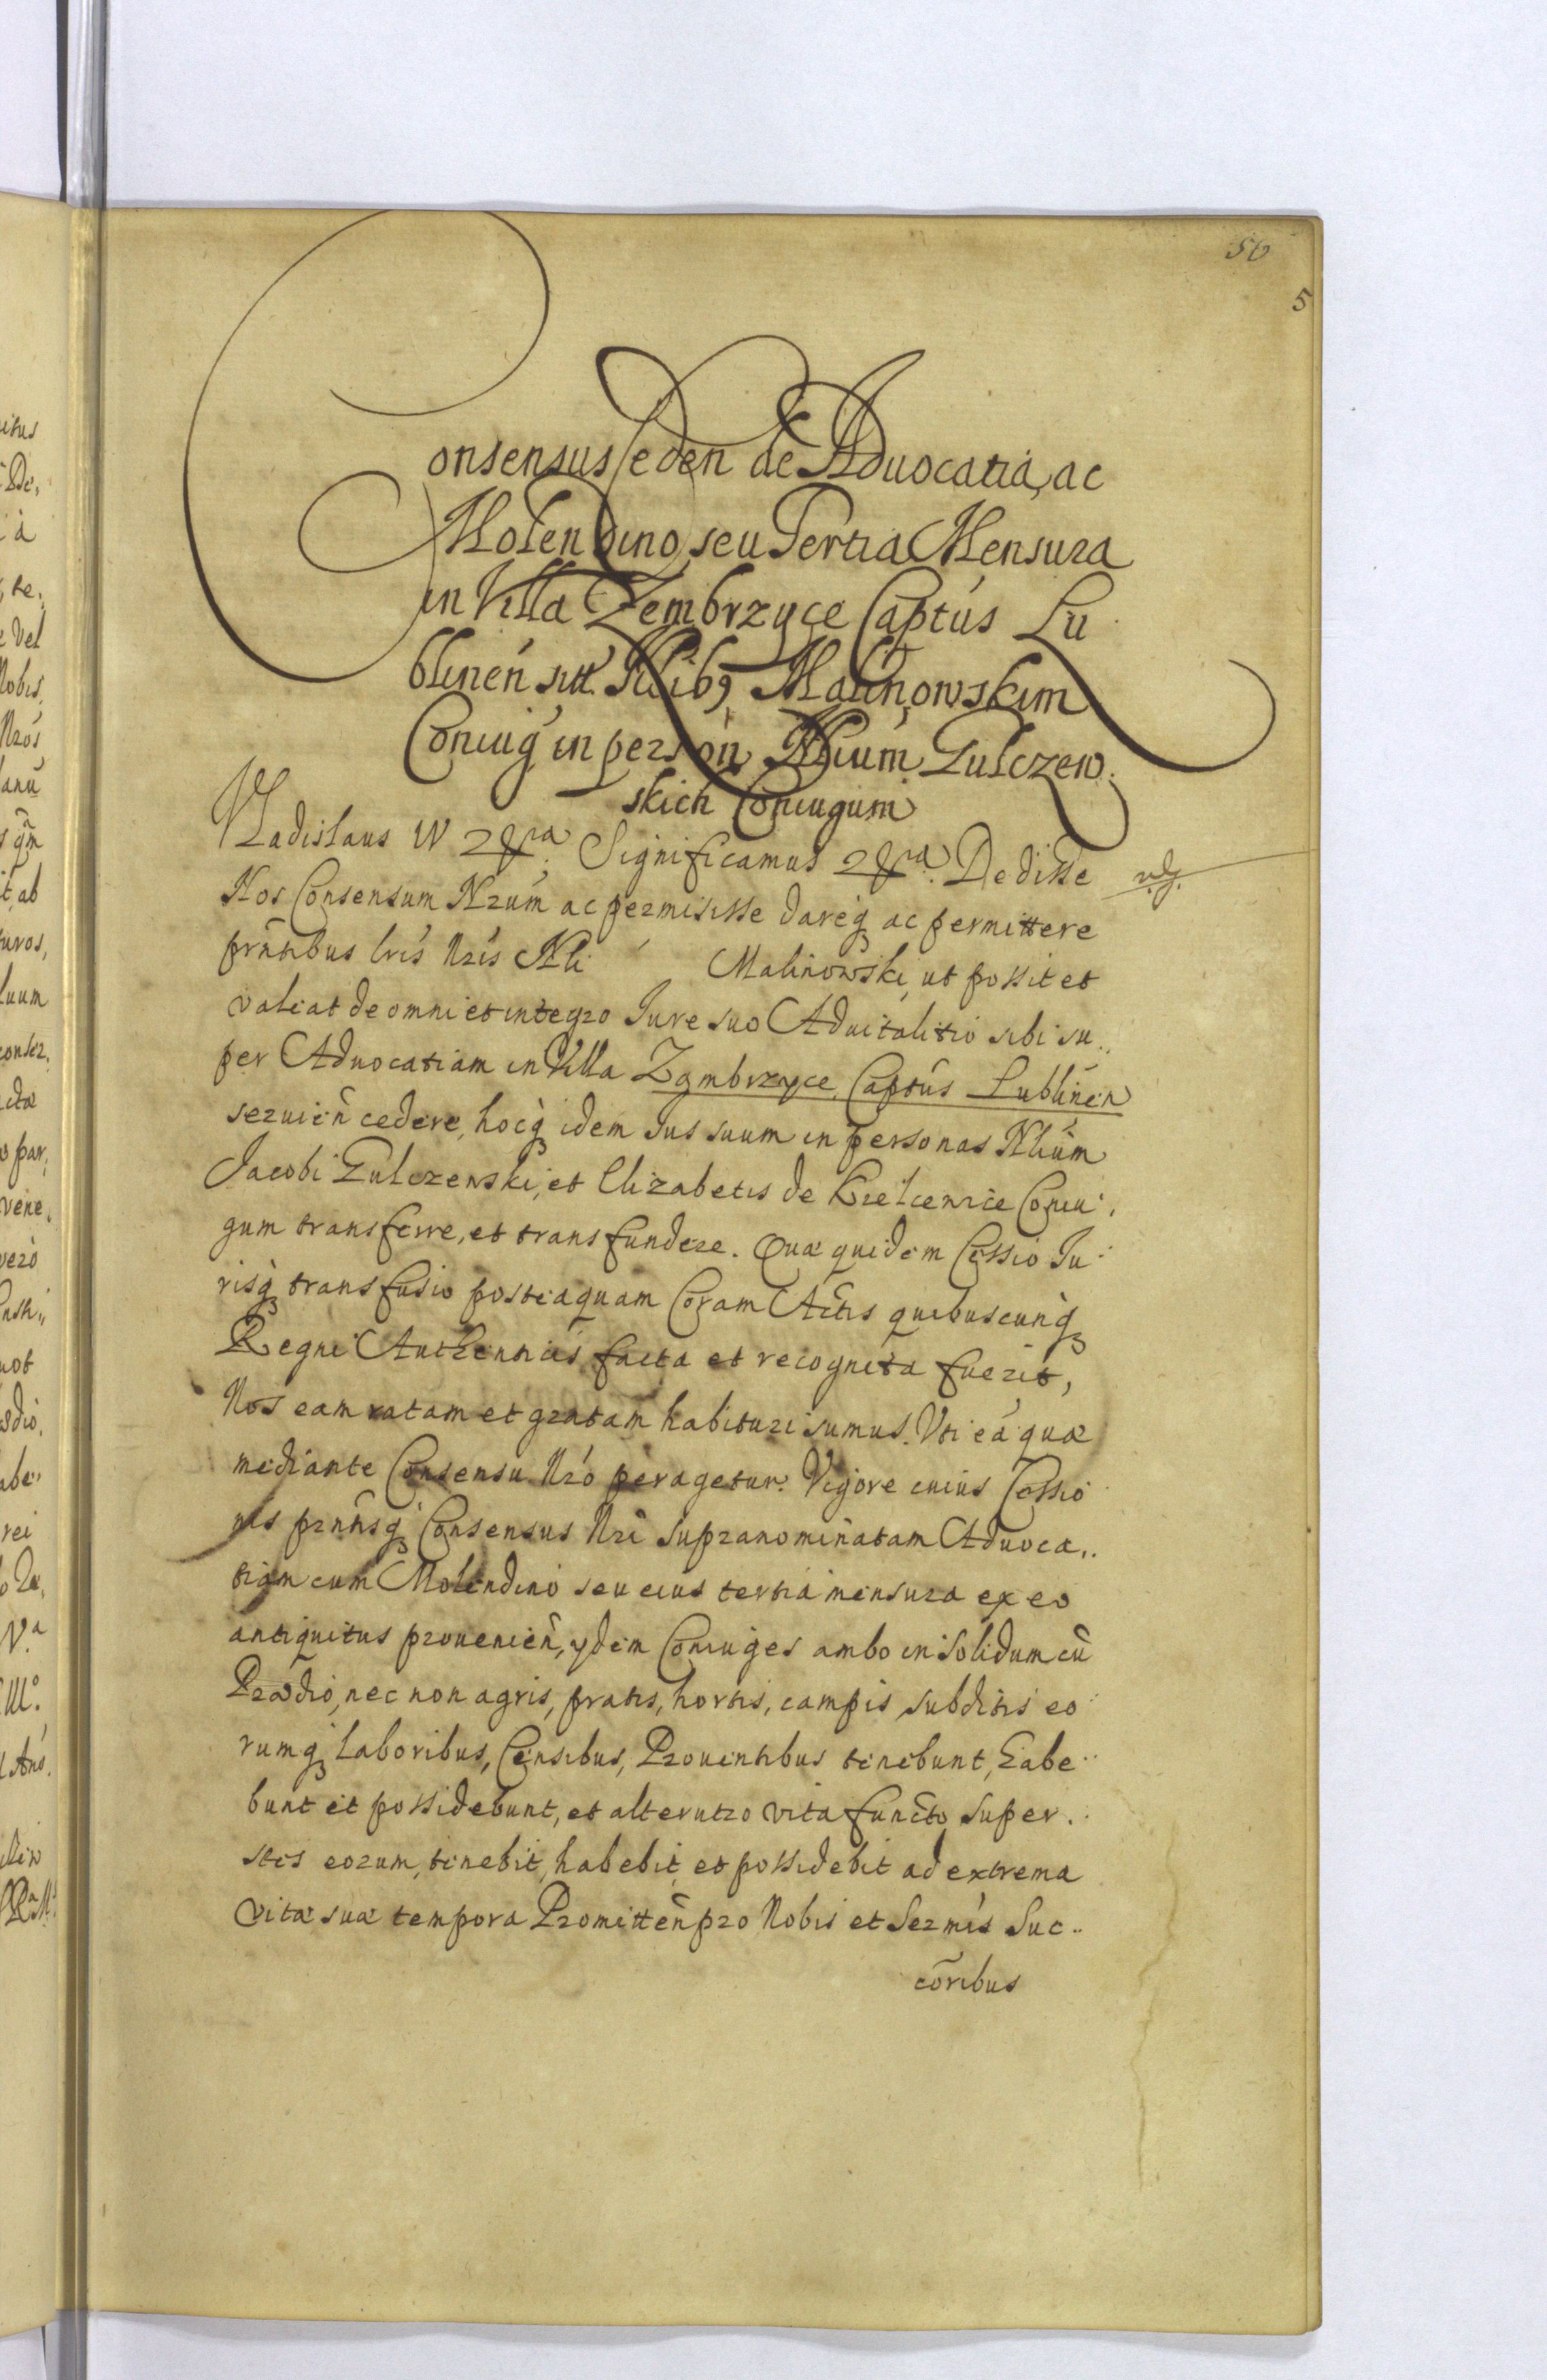 50
5
Consensus ceden de Aduocatia, ac
Molendino, seu Tertia Mensura
in Villa Zembrzyce Captús Lu
blineń Malinowskim
Coniug in person Nlium Zulczew
skich Coniugum
Vladislaus IV Significamus Dedisse
Nos Consensum Nrúm ac permisisse dareq́ ac permittere
prntibus lris Nris Nli Malinowski, ut possit et
valeat de omni et integro Iure suo Aduitalitio sibi su
per Aduocatiam in Villa Zembrzyce, Captús Lublinen
seruień cedere, hocq́ idem Ius suum in personas Nliūm
Jacobi Zulczewski, et Elizabetis de Kielcewice Coniu
gum transferre, et transfundere. Quæ quidem Cessio Iu
risq́ transfusio posteaquam Coram Actis quibuscunq́
Regni Authenticis facta et recognita fuerit,
Nos eam ratam et gratam habituri sumus. Vti eá quæ
mediante Consensu Nró peragetur. Vigore cuius Cessio
nis prntisq́ Consensus Nri supranominatam Aduoca,,
tiam cum Molendino seu eius tertiá mensura ex eo
antiquitus prouenień, ydem Coniuges ambo in solidum cū
Prædio, nec non agris, pratis, hortis, campis subditis eo
rumq́ laboribus, Censibus, Prouentibus tenebunt, habe
bunt et possidebunt, et alterutro vita functo super
stes eorum, tenebit, habebit, et possidebit ad extrema
vitæ suæ tempora Promitteń pro Nobis et Sermis Suc
cōribus